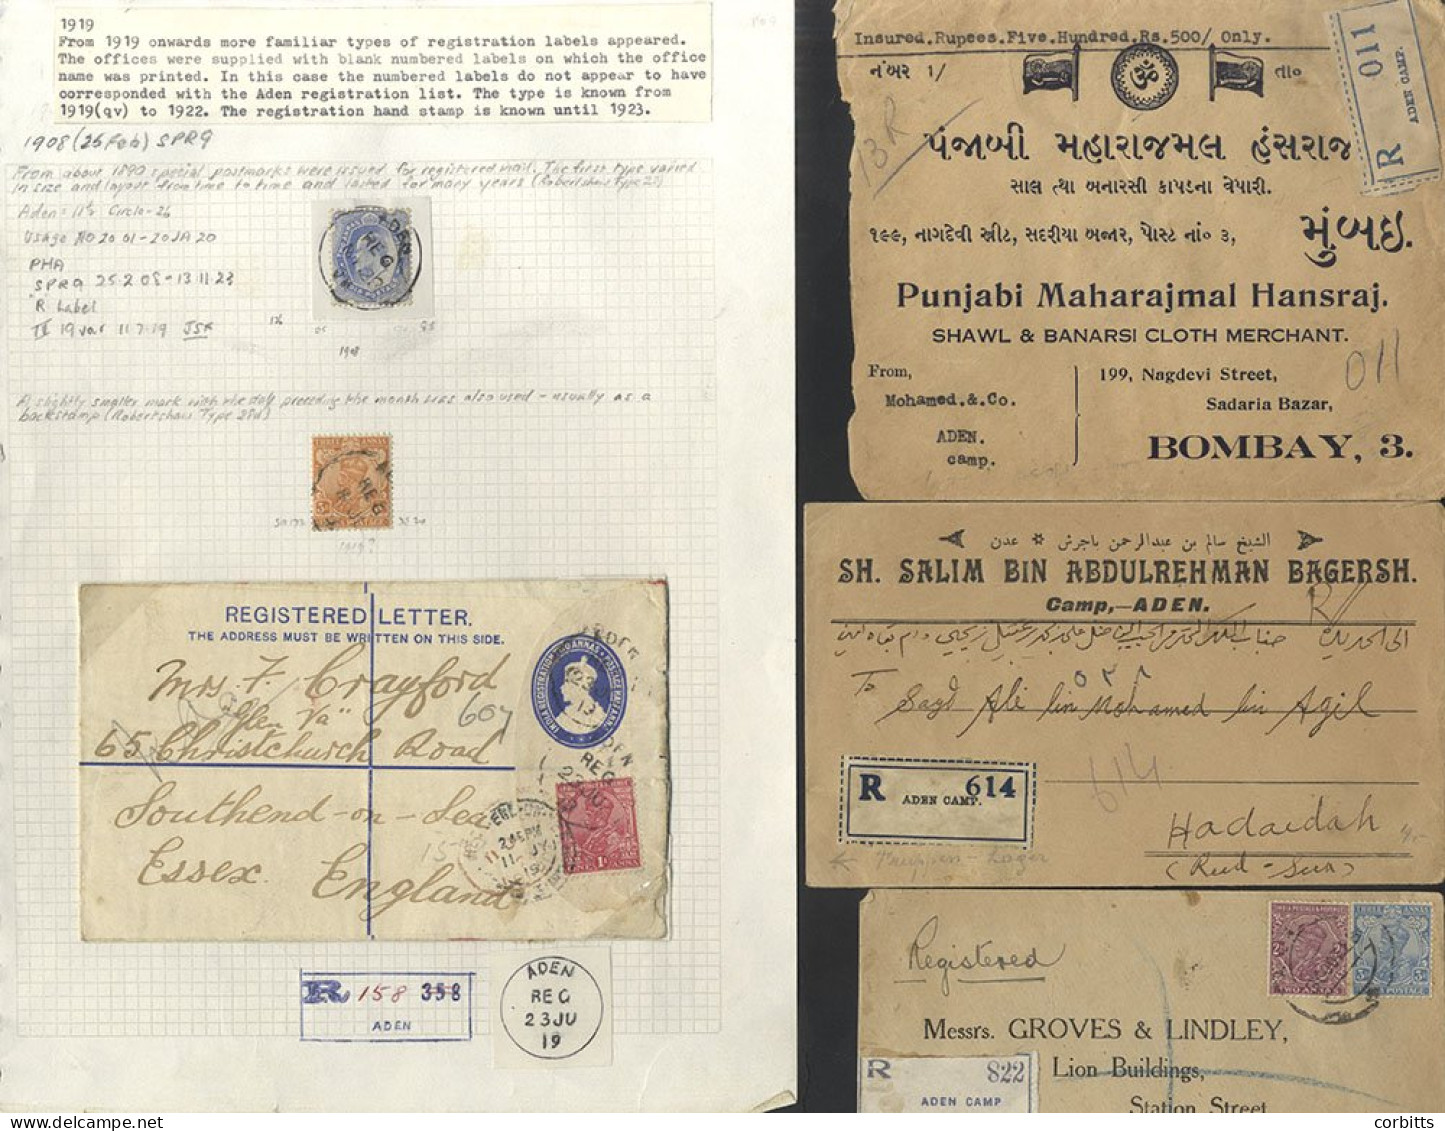 1919
From 1919 onwards more familiar types of registration labels appeared.
The offices were supplied with blank numbered labels on which the office
name was printed. In this case the numbered labels do not appear to have
corresponded with the Aden registration list. The type is known from
1919(qv) to 1922. The registration hand stamp is known until 1923.
1908 (25 Feb) SPR9
From about 1890 special postmarks were issued for registered mail. The first type varied
in size and layout from time to time and lasted for many years (Robertshaw Type 28)
Aden = 11½ Circle - 26
Usage NO 20 01 - 20 JA 20
PHA
SPR9 25.2.08 - 13.11.23
R Label
19 var 11.7.19 JSK
ADEN
REG
1908
A slightly smaller mark with the date preceding the month was also used - usually as a
backstamp (Robertshaw Type 28d)
REG
1919?
REGISTERED LETTER.
THE ADDRESS MUST BE WRITTEN ON THIS SIDE.
INDIA REGISTRATION
Mrs F. Crayford
"Glen Va"
607
65 Christchurch Road
Southend-on-Sea
Essex. England
ADEN
REG
23 JU
R 158 358
ADEN
ADEN
REG
23 JU
19
Insured.Rupees.Five.Hundred.Rs.500/ Only.
નંબર 1/
ૐ
તા૦
R 011
ADEN CAMP.
13 R
પંજાબી મહારાજમલ હંસરાજ
સાલ તથા બનારસી કાપડના વેપારી.
૧૯૯, નાગદેવી સ્ત્રીટ, સદરીયા બજાર, પોસ્ટ નાં૦ ૩,
મુંબઇ.
Punjabi Maharajmal Hansraj.
SHAWL & BANARSI CLOTH MERCHANT.
011
From,
Mohamed.&.Co.
ADEN.
camp.
199, Nagdevi Street,
Sadaria Bazar,
BOMBAY, 3.
الشيخ سالم بن عبدالرحمن باجرش ✡ عدن
SH. SALIM BIN ABDULREHMAN BAGERSH.
Camp,—ADEN.
R/
To
Sayd Ali bin Mohamed bin Agil
R 614
ADEN CAMP.
614
Hodaidah
(Red-Sea)
Registered
Messrs. GROVES & LINDLEY,
Lion Buildings,
Station Street
R 822
ADEN CAMP
corbitts